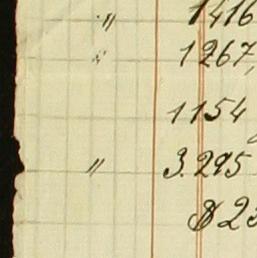 " 1416
" 1267,
1154
" 3.295
$ 23